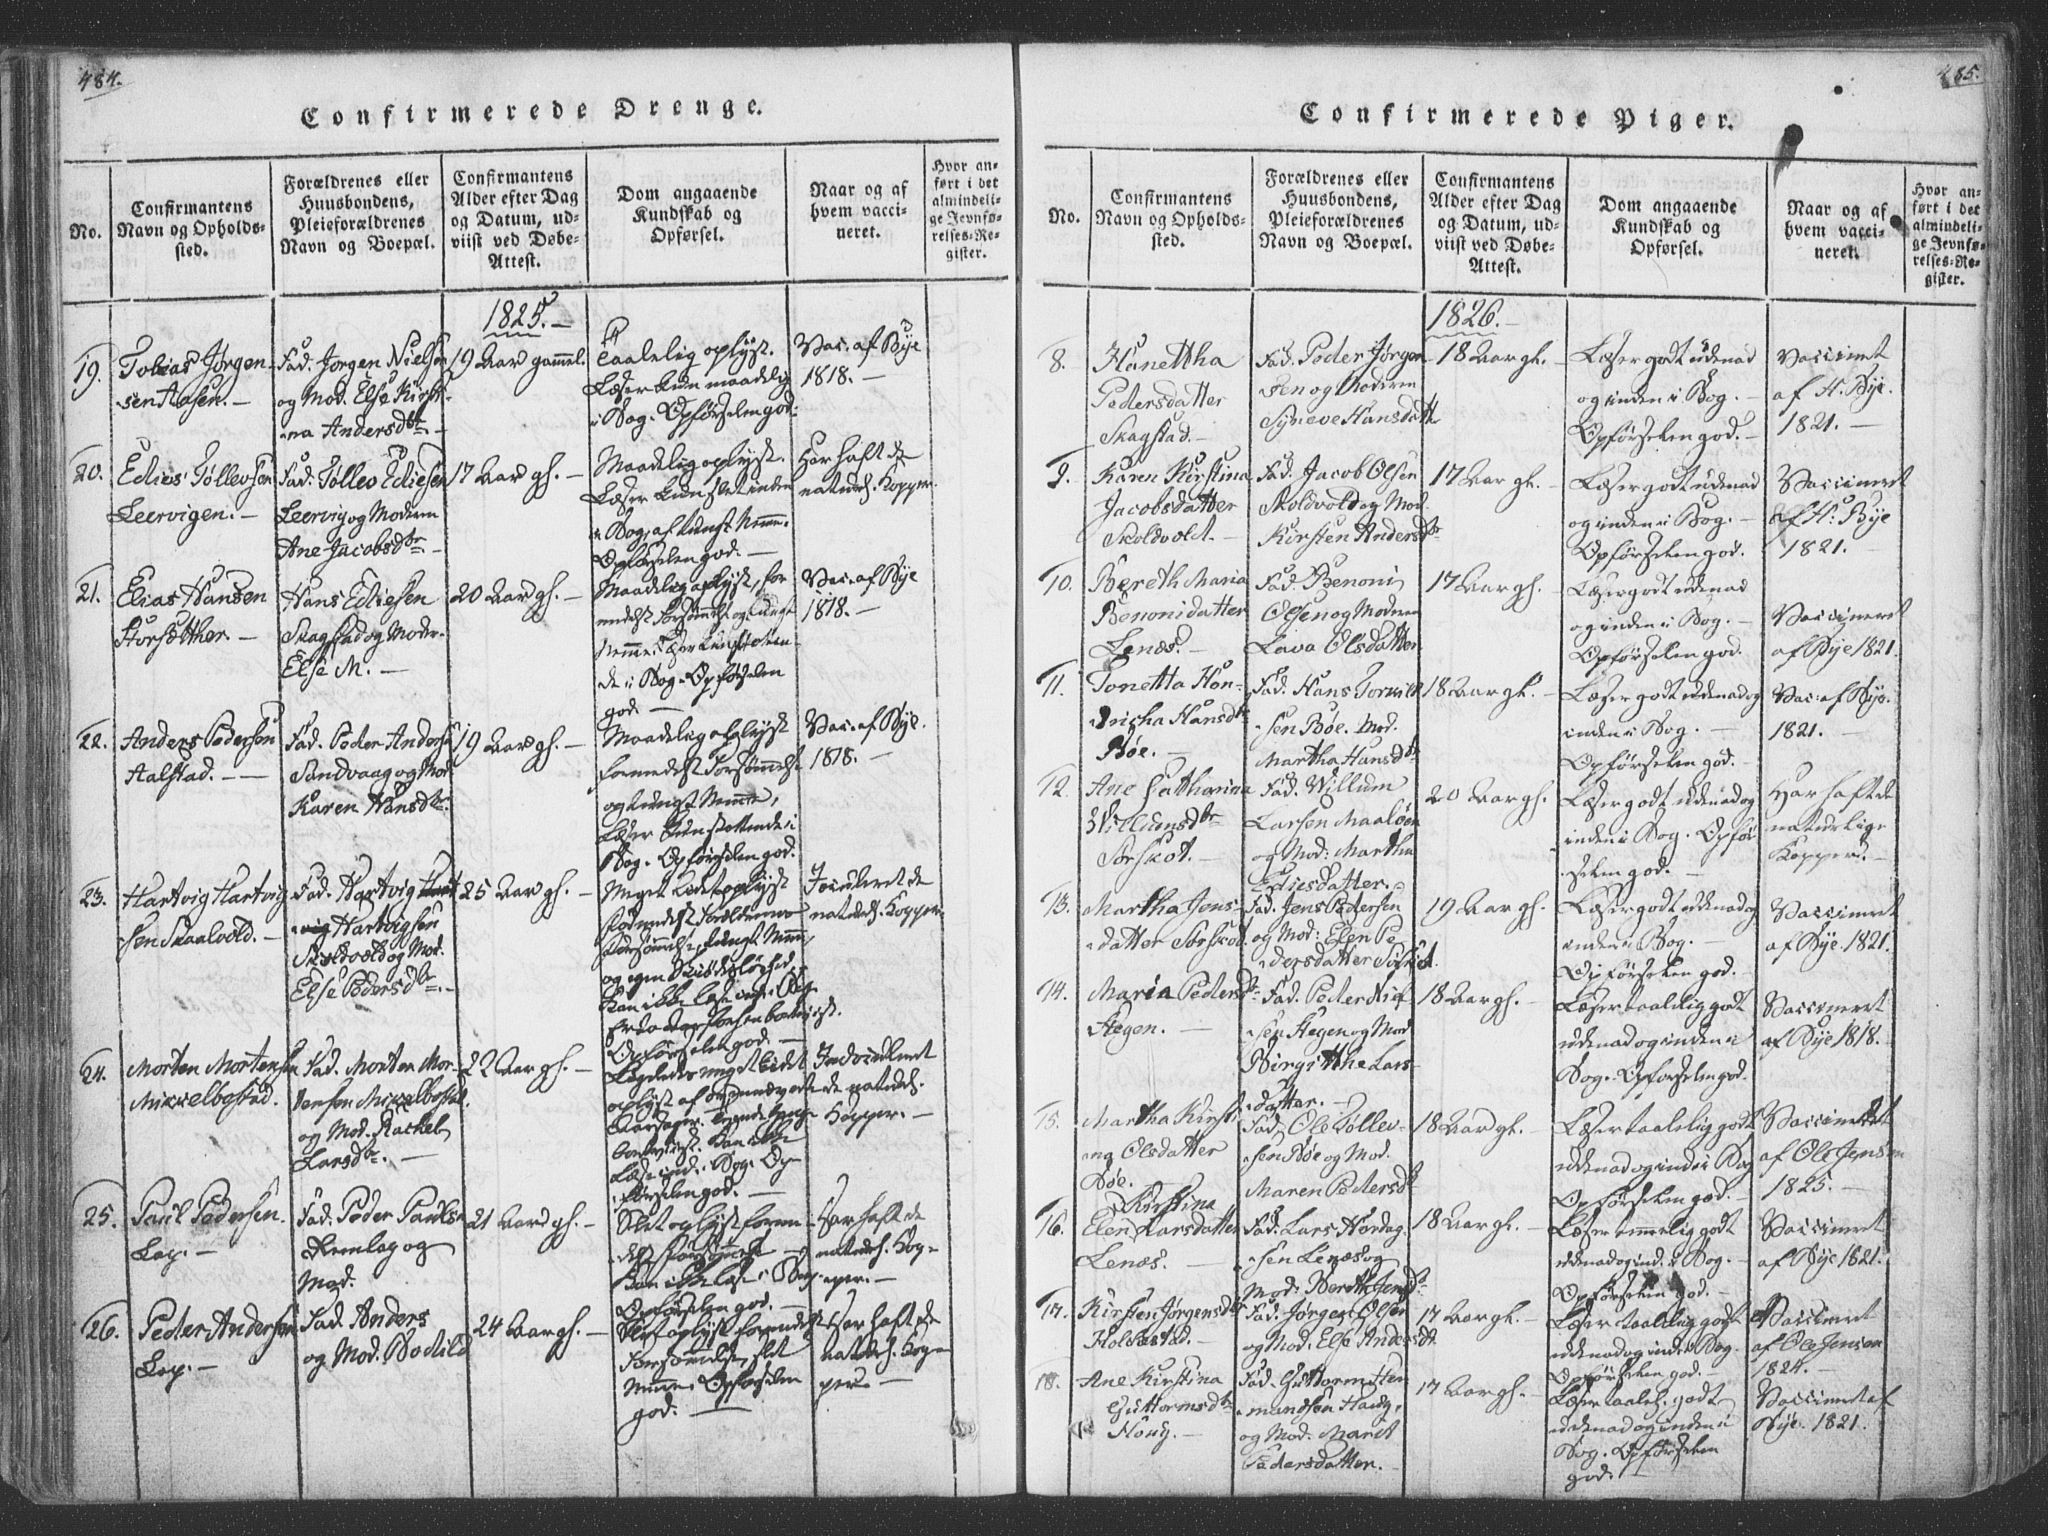 484.
Confirmerede Drenge.
No.
Confirmantens
Navn og Opholds-
sted.
Forældrenes eller
Huusbondens,
Pleieforældrenes
Navn og Boepæl.
Confirmantens
Alder efter Dag
og Datum, ud-
viist ved Døbe-
Attest.
Dom angaaende
Kundskab og
Opførsel.
Naar og af
hvem vacci-
neret.
Hvor an-
ført i det
almindeli-
ge Jevnfø-
relses-Re-
gister.
1825.
19.
Tobias Jørgen-
sen Aasen.
Fad. Jørgen Nielsen
og Mod. Else Kirst-
ina Andersdtr.
19 Aar gammel.
Taalelig oplyst.
Læser kun maadelig
i Bog. Opførselen god.
Vac. af Bye
1818.
20.
Edias Tøllevsen
Leervigen.
Fad. Tøllev Ediesen
Leervig og Moderen
Ane Jacobsdtr
17 Aar gl.
Maadelig oplyst.
Læser kun slet inden
i Bog, af tungt Nemme.
Opførselen god.
Har haft de
naturl. Kopper.
21.
Elias Hansen
Storsætther.
Hans Ediesen
Skagstad og Moder
Else M.
20 Aar gl.
Maadelig oplyst, for-
medelst Forsømmelse og tungt
Nemme. Læser kun
de i Bog. Opførselen
god
Vac. af Bye
1818.
22.
Anders Pedersen
Aalstad.
Fad. Peder Anders
Sandvaag og Mod
Karen Hansdtr.
19 Aar gl.
Maadelig oplyst
formedelst Forsømmelse
og tungt Nemme,
Læser kun
Bog. Opførselen god.
Vac. af Bye.
1818.
23.
Hartvig Hartvig-
sen Skaalvold.
Fad. Hartvig
Hartvigsen
Skoldvold og Mod.
Else Pedersdtr.
25 Aar gl.
Meget lidet oplyst
formedelst Forældrenes
Forsømmelse, tungt Nemme,
og egen
Kan ikke læse i Bog
Opførselen god.
Inoculeret de
naturl. Kopper.
24.
Morten Mortensen
Mikkelbostad.
Fad. Morten Mor-
tensen Mikkelbostad.
og Mod. Rachel
Larsdtr.
22 Aar gl.
Ligeledes meget lidet
oplyst af
Aarsager.
Kan ikke
læse ind. i Bog. Op-
førselen god.
Inoculeret
de naturl.
Kopper.
25.
Paul Pedersen.
Lap.
Fad. Peder Pauls
Remlap og
Mod.
21 Aar gl.
Slet oplyst forme-
delst Forsømmelse
Kan ikke læse i Bog.
Opførselen god.
Har haft de
naturl. Kop-
per.
26.
Peder Andersen
Lap.
Fad. Anders
og Mod. Bodild
24 Aar gl.
Slet oplyst formedelst
Forsømmelse, slet
Nemme. Opførselen
god.
Har haft de
naturl. Kop-
per.
485.
Confirmerede Piger.
No.
Confirmantens
Navn og Opholds-
sted.
Forældrenes eller
Huusbondens,
Pleieforældrenes
Navn og Boepæl.
Confirmantens
Alder efter Dag
og Datum, ud-
viist ved Døbe-
Attest.
Dom angaaende
Kundskab og
Opførsel.
Naar og af
hvem vacci-
neret.
Hvor an-
ført i det
almindeli-
ge Jevnfø-
relses-Re-
gister.
1826.
8.
Hanettha
Pedersdatter
Skagstad.
Fad. Peder Jørgen-
sen og Moderen
Syneve Hansdatt
18 Aar gl.
Læser godt udenad
og inden i Bog.
Opførselen god.
Vaccineret
af H. Bye.
1821.
9.
Karen Kirstina
Jacobsdatter
Skoldvold.
Fad. Jacob Olsen
Skoldvold og Mod.
Kirsten Andersdtr
17 Aar gl.
Læser godt udenad
og inden i Bog.
Opførselen god.
Vaccineret
af H. Bye
1821.
10.
Bereth Maria
Benonidatter
Lenæs.
Fad. Benoni
Olsen og Moderen
Lava Olsdatter
17 Aar gl.
Læser godt udenad
og inden i Bog.
Opførselen god.
Vaccineret
af Bye 1821.
11.
Tonetta Hen-
dricha Hansdtr
Bøe.
Fad. Hans Torkild-
sen Bøe. Mod.
Martha Hansdtr
18 Aar gl.
Læser godt udenad og
inden i Bog.
Opførselen god.
Vac. af Bye.
1821.
12.
Ane Catharina
Willumsdtr
Sørskot.
Fad. Willum
Larsen Maaløen
og Mod: Martha
Ediesdatter.
20 Aar gl.
Læser godt udenad og
inden i Bog. Opfør-
selen god.
Har haft de
naturlige
Kopper.
13.
Martha Jens-
datter Sørskot.
Fad. Jens Pedersen
og Mod: Elen Pe-
dersdatter Sørskot.
19 Aar gl.
Læser godt udenad og
inden i Bog.
Opførselen god.
Vaccineret
af Bye. 1821.
14.
Maria Pedersdtr
Stegen.
Fad. Peder Niel-
sen Stegen og Mod
Birgitthe Lars-
datter.
18 Aar gl.
Læser taalelig godt
udenad og inden i
Bog. Opførselen god.
Vaccineret
af Bye 1818.
15.
Martha Kirsti-
na Olsdatter
Bøe.
Fad. Ole Tøllev-
sen Bøe og Mod.
Maren Pedersdtr
18 Aar gl.
Læser taalelig godt
udenad og inde i Bog
Opførselen god.
Vaccineret
af Ole Jensen
1825.
16.
Kirstina
Elen Larsdatter
Lenæs.
Fad. Lars Hardag-
sen Lenæs og
Mod: Bereth Jensdtr
18 Aar gl.
Læser temmelig godt
udenad og ind. i Bog.
Opførselen god.
Vaccineret
af Bye 1821.
17.
Kirsten Jørgensdtr
Holkestad.
Fad. Jørgen Olsen
og Mod. Else Andersdtr
17 Aar gl.
Læser taalelig godt
udenad og inde i Bog.
Opførselen god.
Vaccineret
af Ole Jensen
1824.
18.
Ane Kirstina
Guttormsdtr
Houg.
Fad. Guttorm Sten
mandsen Haug,
og Mod: Maret
Pedersdatter.
17 Aar gl.
Læser taalel. godt
udenad og inden i
Bog. Opførselen
god.
Vaccineret af
Bye. 1821.